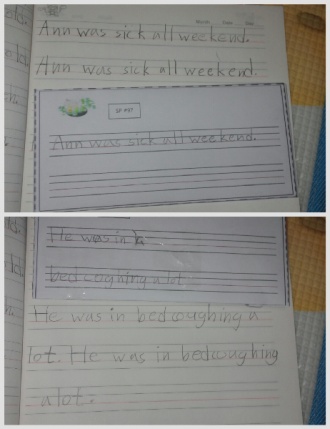 Ann was sick all weekend.
Ann was sick all weekend.
Ann was sick all weekend.
He was in
bed coughing a lot.
He was in bed coughing a
lot. He was in bed coughing
a lot.